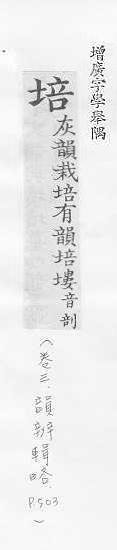 增廣字學舉隅
培 灰韻栽培有韻培塿音剖
(卷三.韻辨輯略 P.503)